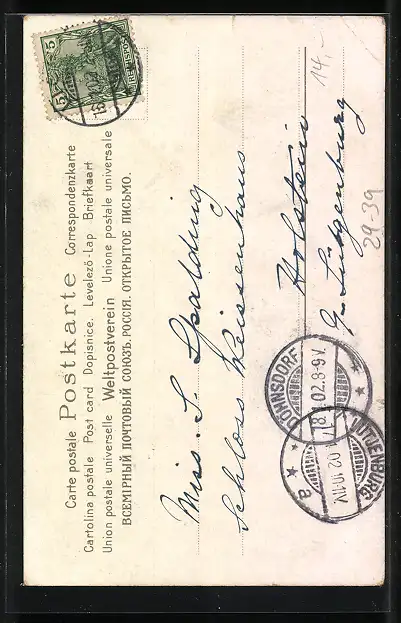 Carte postale Postkarte Correspondenzkarte
Cartolina postale Post card Dopisnice. Levelező-Lap Briefkaart
Union postale universelle Weltpostverein Unione postale universale
ВСЕМІРНЫЙ ПОЧТОВЫЙ СОЮЗЪ. РОССІЯ. ОТКРЫТОЕ ПИСЬМО.
5 5
REICHSPOST
Miss. S. Spalding
Schloss Weissenhaus
Holstein
14,-
29-39
02.8-9V.
a